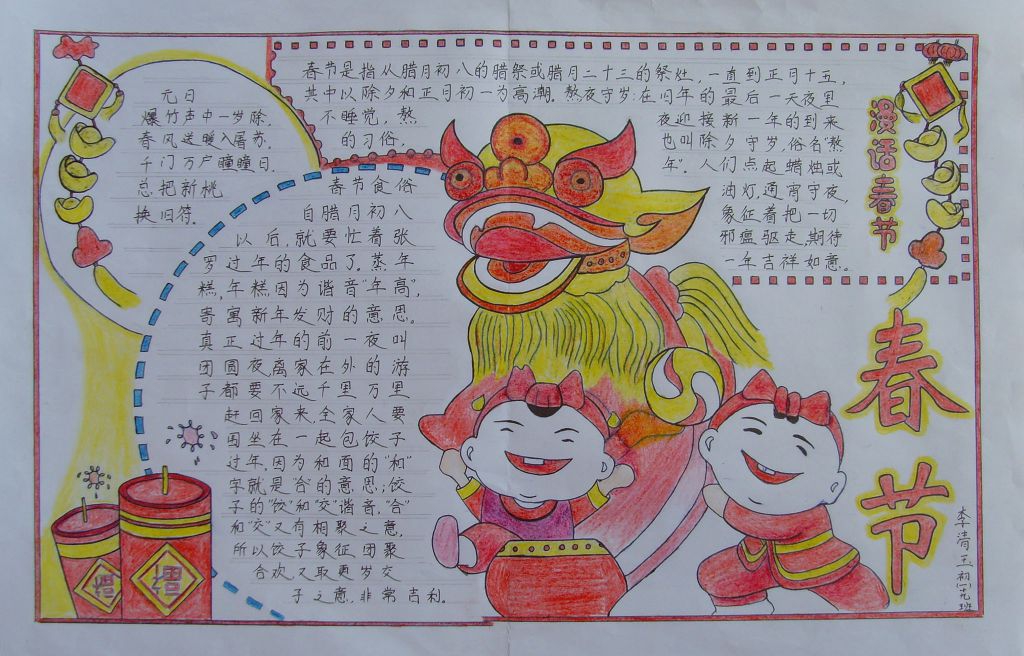 元日
爆竹声中一岁除,
春风送暖入屠苏.
千门万户瞳瞳日.
总把新桃
换旧符.
春节是指从腊月初八的腊祭或腊月二十三的祭灶,一直到正月十五,
其中以除夕和正月初一为高潮.熬夜守岁:在旧年的最后一天夜里
不睡觉,熬
的习俗,
夜迎接新一年的到来
也叫除夕守岁,俗名"熬
年".人们点起蜡烛或
油灯,通宵守夜,
象征着把一切
邪瘟驱走,期待
一年吉祥如意。
漫话春节
春节食俗
自腊月初八
以后,就要忙着张
罗过年的食品了.蒸年
糕,年糕因为谐音"年高",
寄寓新年发财的意思。
真正过年的前一夜叫
团圆夜,离家在外的游
子都要不远千里万里
赶回家来,全家人要
围坐在一起包饺子
过年,因为和面的"和"
字就是合的意思;饺
子的"饺"和"交"谐音,"合"
和"交"又有相聚之意,
所以饺子象征团聚
合欢,又取更岁交
子之意,非常吉利.
春节
福
福